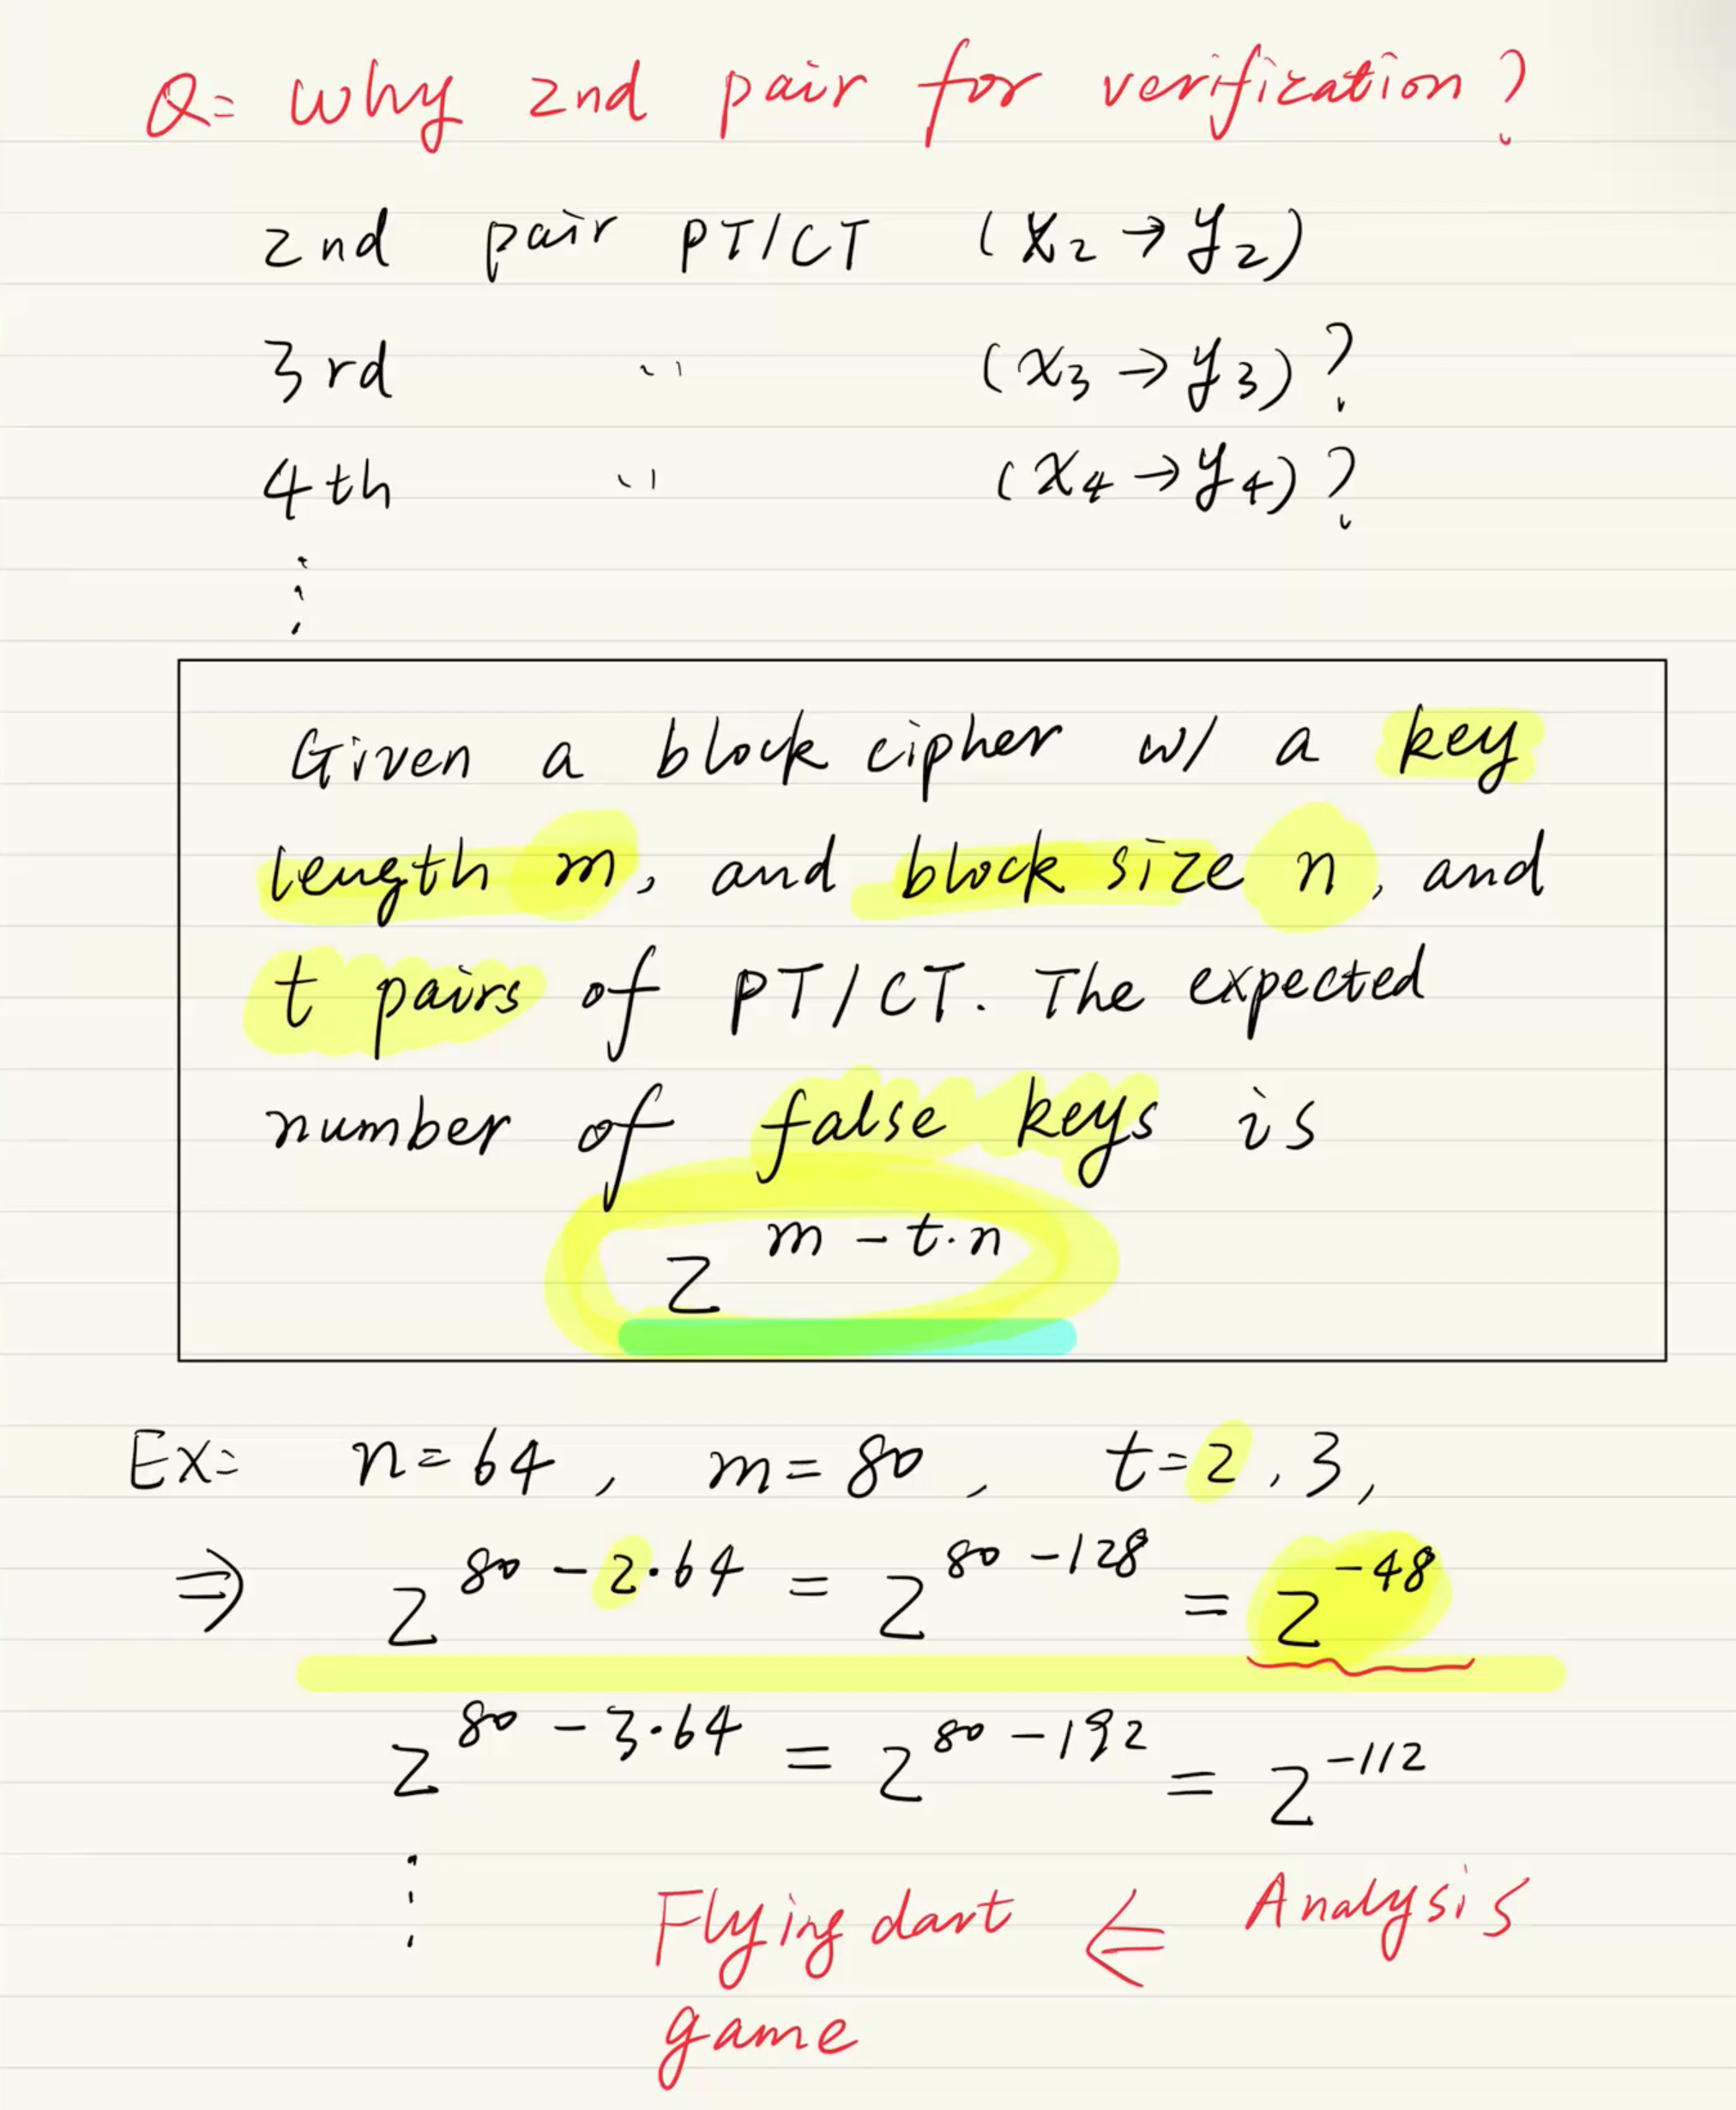 Q: Why 2nd pair for verification?
2nd pair PT/CT (x₂ → y₂)
3rd " (x₃ → y₃)?
4th " (x₄ → y₄)?
⋮
Given a block cipher w/ a key
length m, and block size n, and
t pairs of PT/CT. The expected
number of false keys is
2^(m - t·n)
Ex: n = 64, m = 80, t = 2, 3,
⇒ 2^(80 - 2·64) = 2^(80 - 128) = 2^(-48)
2^(80 - 3·64) = 2^(80 - 192) = 2^(-112)
⋮
Flying dart ⇐ Analysis
game